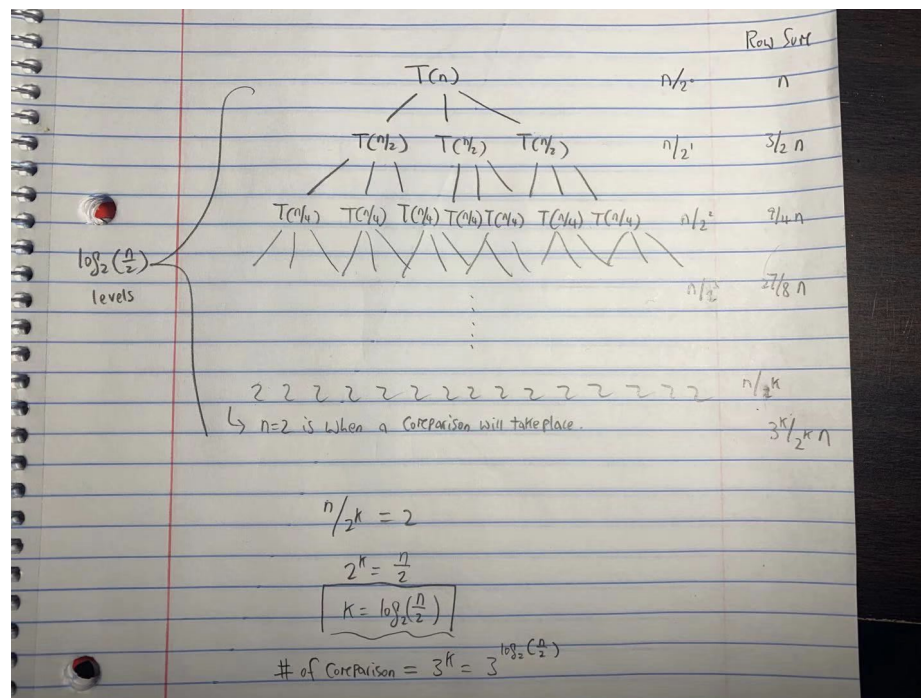 Row Sum
T(n) n/2⁰ n
T(n/2) T(n/2) T(n/2) n/2¹ 3/2 n
T(n/4) T(n/4) T(n/4) T(n/4) T(n/4) T(n/4) T(n/4) n/2² 9/4 n
log₂(n/2)
levels
n/2³ 27/8 n
2 2 2 2 2 2 2 2 2 2 2 2 2 2 2 n/2ᵏ
↳ n=2 is when a comparison will take place. 3ᵏ/2ᵏ n
n/2ᵏ = 2
2ᵏ = n/2
k = log₂(n/2)
# of comparison = 3ᵏ = 3^log₂(n/2)